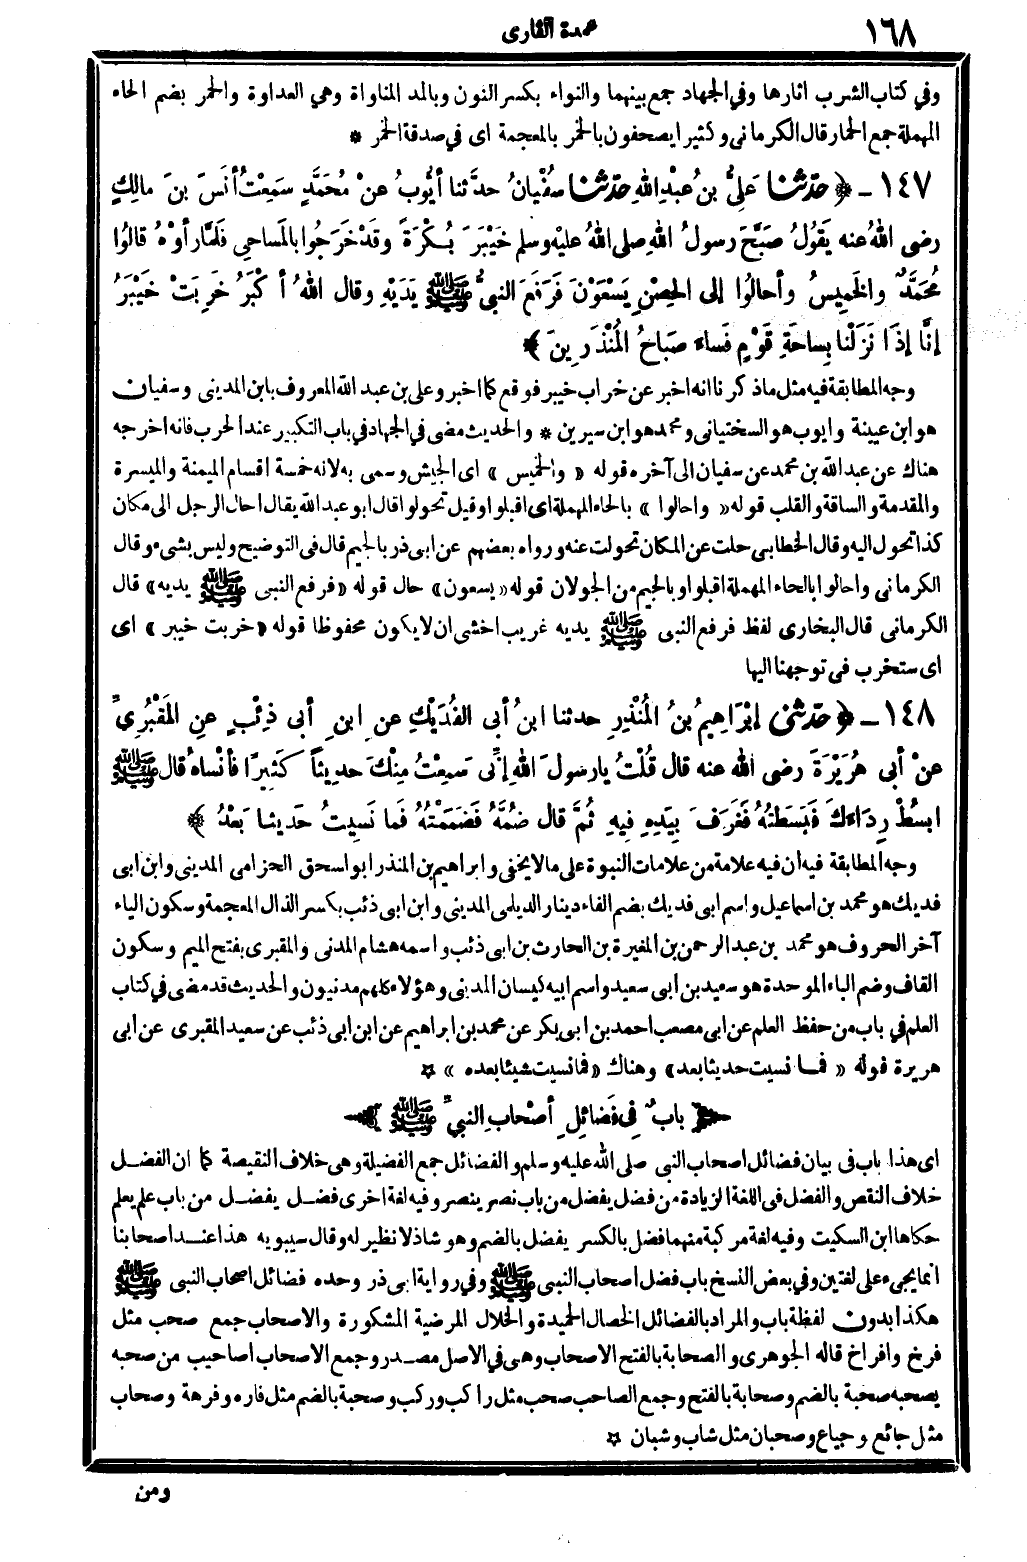 ١٦٨
عمدة القارى
وفي كتاب الشرب اثارها وفي الجهاد جمع بينهما والنواء بكسر النون وبالمد المناواة وهي العداوة والحمر بضم الحاء
المهملة جمع الحمار قال الكرمانى وكثيرا يصحفون بالخمر بالمعجمة اى في صدقة الخمر *
١٤٧ ـ ﴿ حدّثنا عَلِيُّ بنُ عبْدِ اللهِ حدّثنا سُفْيانُ حدَّثنا أيُّوبُ عنْ مُحَمَّدٍ سَمِعْتُ أنَسَ بنَ مالِكٍ
رضى اللهُ عنه يَقُولُ صَبَّحَ رسولُ اللهِ صلى اللهُ عليْه وسلم خَيْبَرَ بُكْرَةً وقَدْ خَرَجُوا بالمَساحِى فَلَمَّا رأوْهُ قالُوا
مُحَمَّدٌ والخَمِيسُ وأحالُوا إلى الحِصْنِ يَسْعَوْنَ فَرَفَعَ النبيُّ ﷺ يَدَيْهِ وقال اللهُ أكْبَرُ خَرِبَتْ خَيْبَرُ
إنَّا إذَا نَزَلْنا بِساحَةِ قَوْمٍ فَساءَ صَباحُ المُنْذَرِينَ ﴾
وجه المطابقة فيه مثل ماذكرنا انه اخبر عن خراب خيبر فوقع كما اخبر وعلى بن عبد الله المعروف بابن المدينى وسفيان
هو ابن عيينة وايوب هو السختيانى ومحمد هو ابن سيرين * والحديث مضى في الجهاد في باب التكبير عند الحرب فانه اخرجه
هناك عن عبد الله بن محمد عن سفيان الى آخره قوله « والخميس » اى الجيش وسمى به لانه خمسة اقسام الميمنة والميسرة
والمقدمة والساقة والقلب قوله « واحالوا » بالحاء المهملة اى اقبلوا وقيل تحولوا قال ابو عبد الله يقال احال الرجل الى مكان
كذا تحول اليه وقال الخطابى حلت عن المكان تحولت عنه ورواه بعضهم عن ابى ذر بالجيم قال في التوضيح وليس بشىء وقال
الكرمانى واحالوا بالحاء المهملة اقبلوا وبالجيم من الجولان قوله « يسعون » حال قوله « فرفع النبى ﷺ يديه » قال
الكرمانى قال البخارى لفظ فرفع النبى ﷺ يديه غريب اخشى ان لا يكون محفوظا قوله « خربت خيبر » اى
اى ستخرب فى توجهنا اليها
١٤٨ ـ ﴿ حدّثنى إبْرَاهِيمُ بنُ المُنْذِرِ حدثنا ابنُ أبى الفُدَيْكِ عنِ ابنِ أبى ذِئْبٍ عنِ المَقْبُرِيِّ
عنْ أبى هُرَيْرَةَ رضى اللهُ عنه قال قُلْتُ يا رسولَ اللهِ إنِّى سَمِعْتُ مِنْكَ حدِيثاً كَثِيرًا فأنْساهُ قال ﷺ
ابسُطْ رِدَاءَكَ فَبَسَطْتُهُ فَغَرَفَ بِيَدِهِ فِيهِ ثُمَّ قال ضُمَّهُ فَضَمَمْتُهُ فَما نَسِيتُ حَدِيثا بَعْدُ ﴾
وجه المطابقة فيه ان فيه علامة من علامات النبوة على مالا يخفى وابراهيم بن المنذر ابو اسحق الحزامى المدينى وابن ابى
فديك هو محمد بن اسماعيل واسم ابى فديك بضم الفاء دينار الديلى المدينى وابن ابى ذئب بكسر الذال المعجمة وسكون الياء
آخر الحروف هو محمد بن عبد الرحمن بن المغيرة بن الحارث بن ابى ذئب واسمه هشام المدنى والمقبرى بفتح الميم وسكون
القاف وضم الباء الموحدة هو سعيد بن ابى سعيد واسم ابيه كيسان المدينى وهؤلاء كلهم مدنيون والحديث قد مضى في كتاب
العلم في باب من حفظ العلم عن ابى مصعب احمد بن ابى بكر عن محمد بن ابراهيم عن ابن ابى ذئب عن سعيد المقبرى عن ابى
هريرة قوله « فما نسيت حديثا بعد » وهناك « فما نسيت شيئا بعده » ☆
﴿ بابٌ فِى فَضائِلِ أصْحابِ النبيِّ ﷺ ﴾
اى هذا باب فى بيان فضائل اصحاب النبى صلى الله عليه وسلم والفضائل جمع الفضيلة وهى خلاف النقيصة كما ان الفضل
خلاف النقص والفضل فى اللغة الزيادة من فضل يفضل من باب نصر ينصر وفيه لغة اخرى فضل يفضل من باب علم يعلم
حكاها ابن السكيت وفيه لغة مركبة منهما فضل بالكسر يفضل بالضم وهو شاذ لا نظير له وقال سيبويه هذا عند اصحابنا
انما يجىء على لغتين وفي بعض النسخ باب فضل اصحاب النبى ﷺ وفي رواية ابى ذر وحده فضائل اصحاب النبى ﷺ
هكذا بدون لفظة باب والمراد بالفضائل الخصال الحميدة والخلال المرضية المشكورة والاصحاب جمع صحب مثل
فرخ وافراخ قاله الجوهرى والصحابة بالفتح الاصحاب وهى في الاصل مصدر وجمع الاصحاب اصاحيب من صحبه
يصحبه صحبة بالضم وصحابة بالفتح وجمع الصاحب صحب مثل راكب وركب وصحبة بالضم مثل فاره وفرهة وصحاب
مثل جائع وجياع وصحبان مثل شاب وشبان ☆
ومن